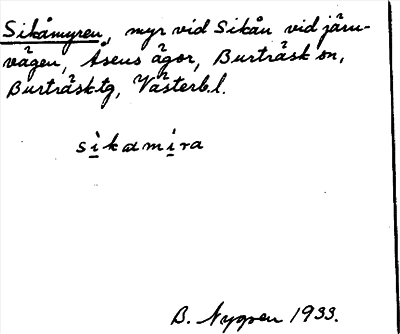 Sikåmyren, myr vid Sikån vid järn-
vägen, Åsens ägor, Burträsk sn,
Burträsk tg, Västerb.l.
sikamira
B. Nygren 1933.